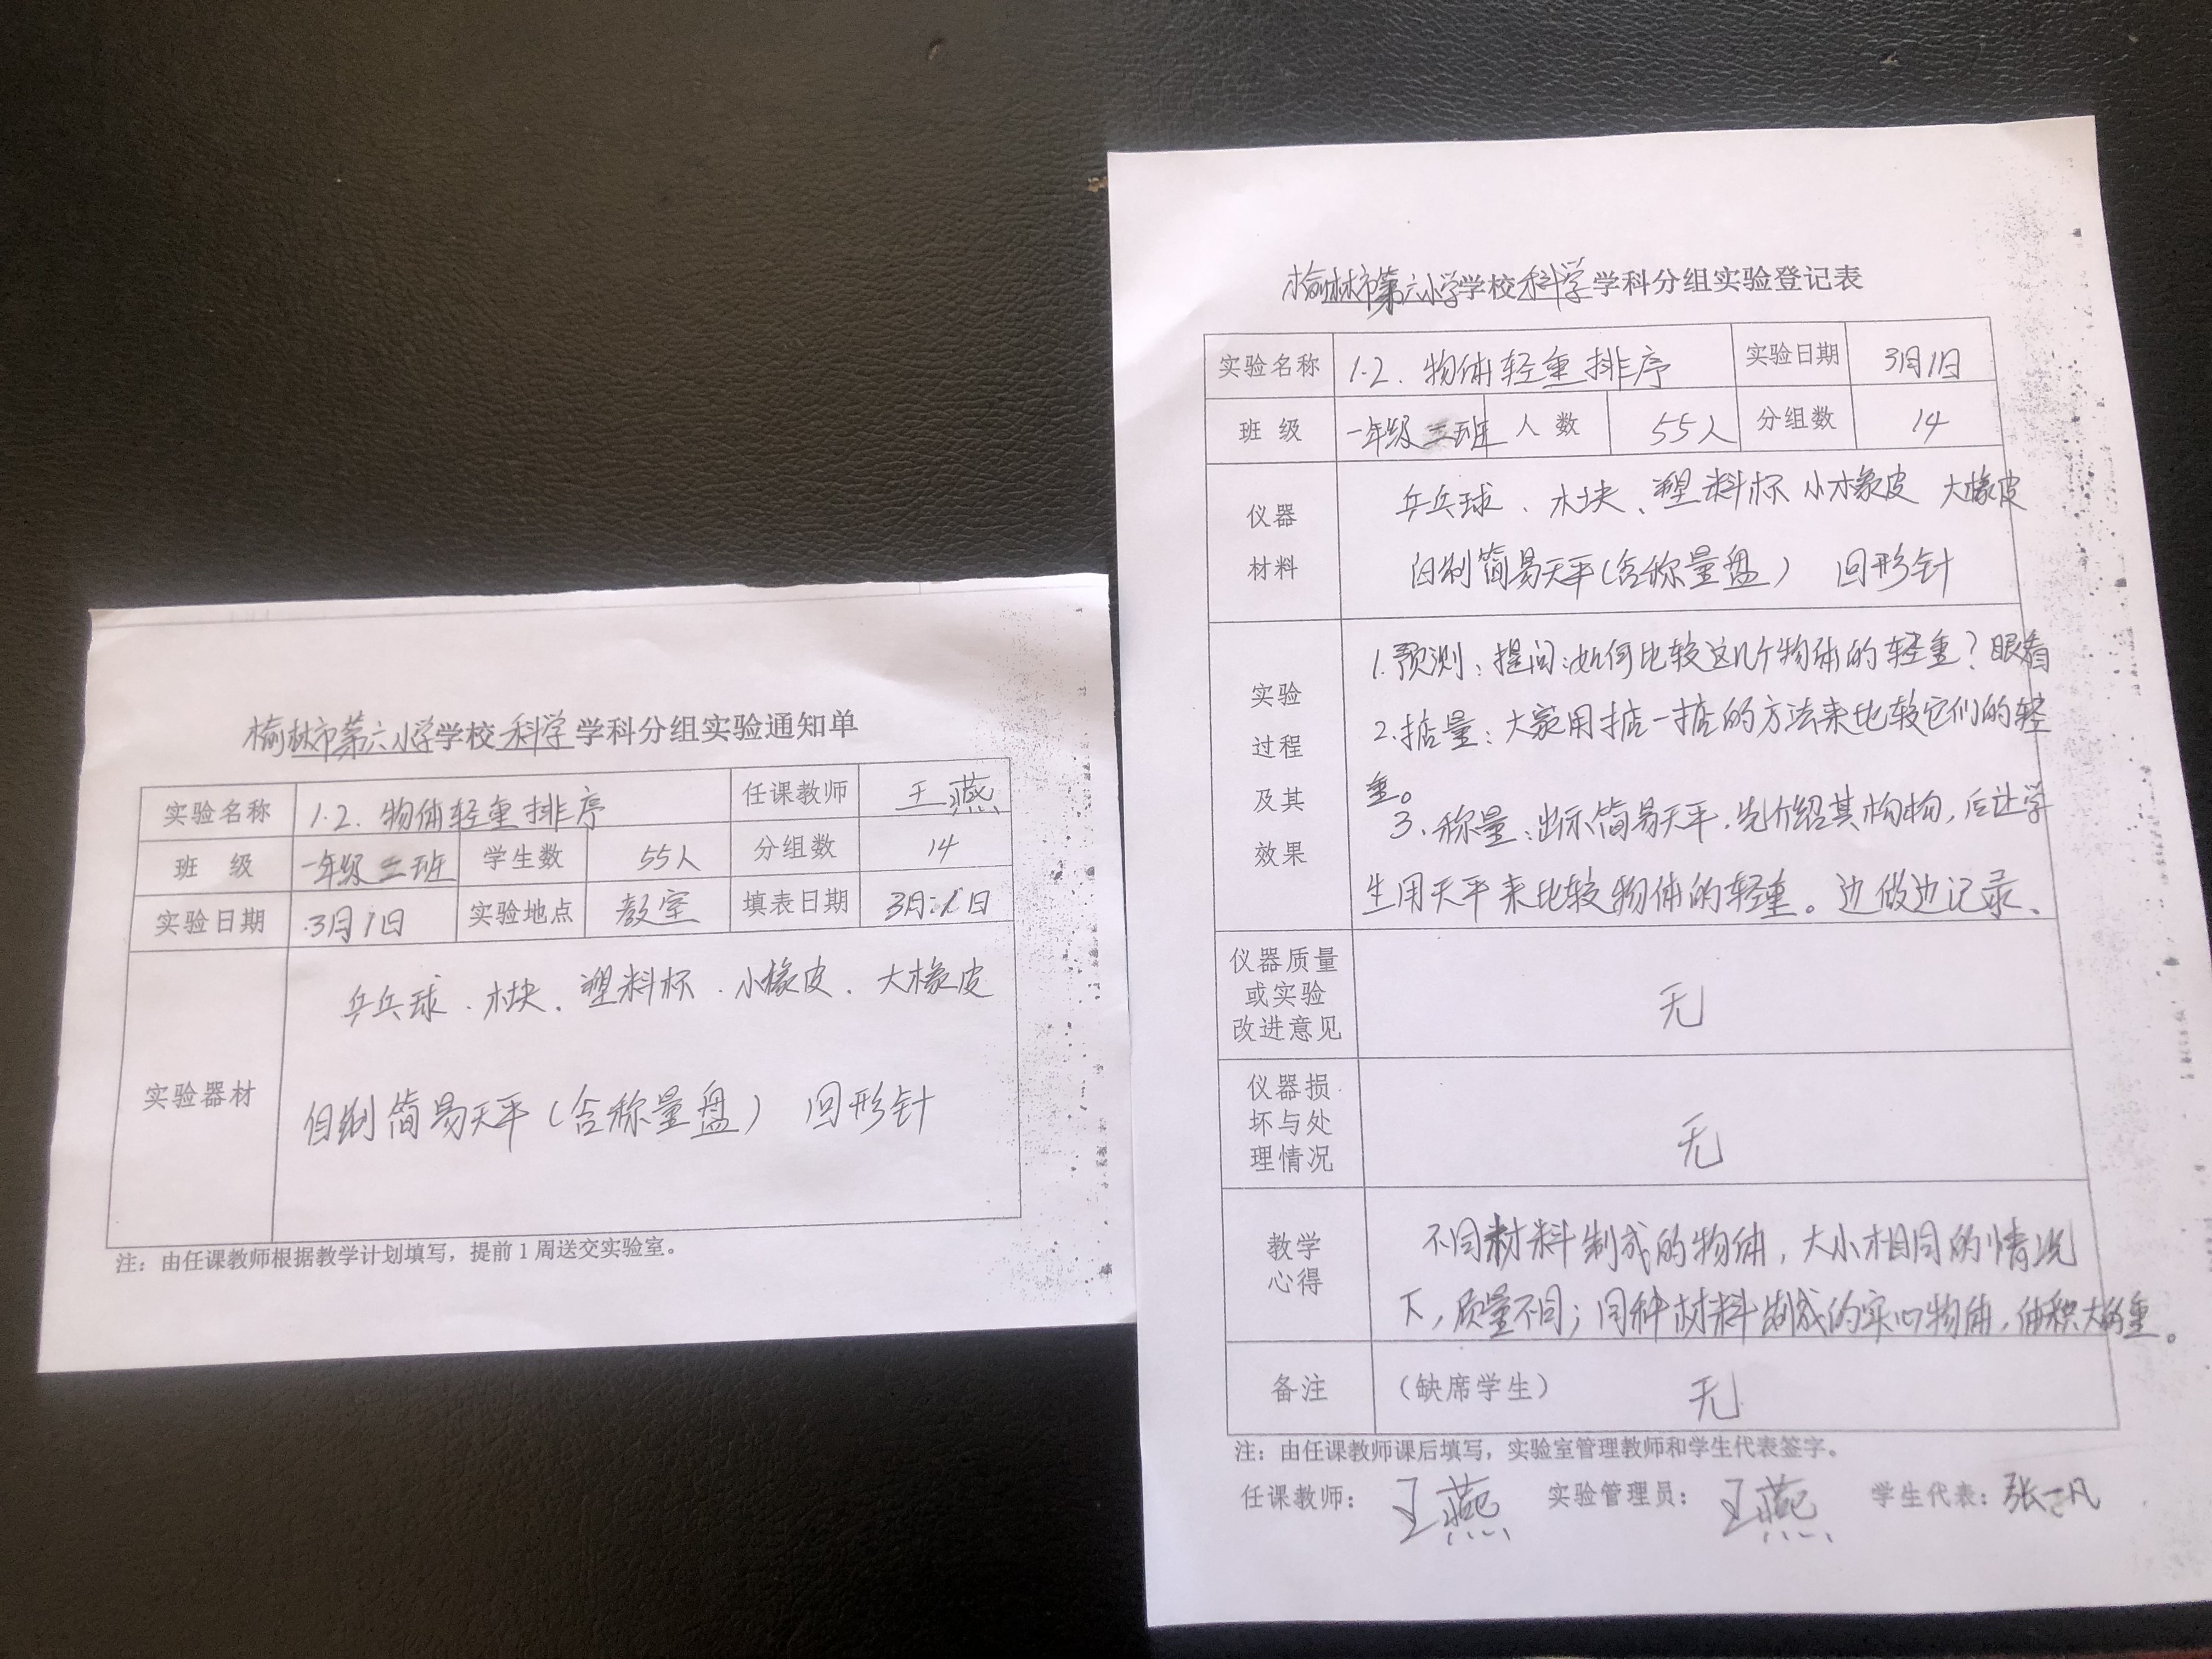 榆林市第六小学学校科学学科分组实验通知单
实验名称 1.2.物体轻重排序 任课教师 王燕
班 级 一年级三班 学生数 55人 分组数 14
实验日期 3月1日 实验地点 教室 填表日期 3月1日
乒乓球、木块、塑料杯、小橡皮、大橡皮
实验器材
自制简易天平(含称量盘) 回形针
注：由任课教师根据教学计划填写，提前1周送交实验室。
榆林市第六小学学校科学学科分组实验登记表
实验名称 1.2.物体轻重排序 实验日期 3月1日
班 级 一年级三班 人 数 55人 分组数 14
仪器
材料
乒乓球、木块、塑料杯 小橡皮 大橡皮
自制简易天平(含称量盘) 回形针
实验
过程
及其
效果
1.预测：提问：如何比较这几个物体的轻重？眼看
2.掂量：大家用掂一掂的方法来比较它们的轻
重。
3、称量：出示简易天平，先介绍其构构，后让学
生用天平来比较物体的轻重。边做边记录、
仪器质量
或实验
改进意见
无
仪器损
坏与处
理情况
无
教学
心得
不同材料制成的物体，大小相同的情况
下，质量不同；同种材料制成的实心物体，体积大的重。
备注 （缺席学生） 无
注：由任课教师课后填写，实验室管理教师和学生代表签字。
任课教师： 王燕 实验管理员： 王燕 学生代表：张一凡